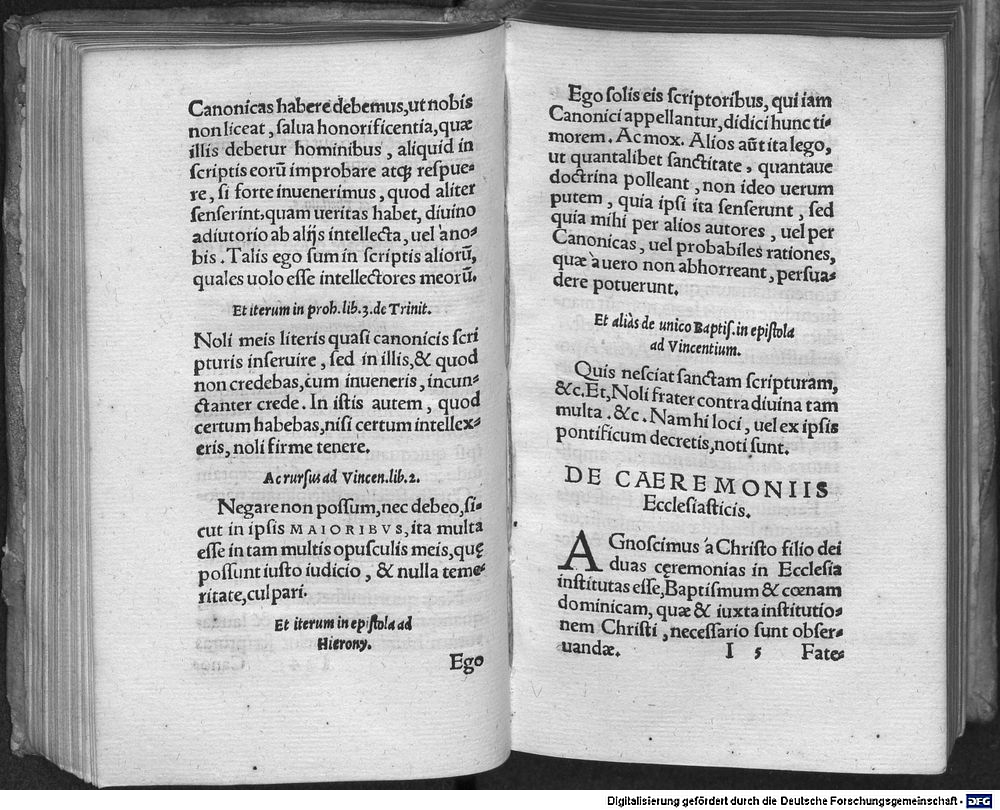 Canonicas habere debemus, ut nobis
non liceat, ſalua honorificentia, quæ
illis debetur hominibus, aliquid in
ſcriptis eorũ improbare atqꝫ reſpue-
re, ſi forte inuenerimus, quod aliter
ſenſerint, quam ueritas habet, diuino
adiutorio ab alijs intellecta, uel à no-
bis. Talis ego ſum in ſcriptis aliorũ,
quales uolo eſſe intellectores meorũ.
Et iterum in proh. lib. 3. de Trinit.
Noli meis literis quaſi canonicis ſcri
pturis inſeruire, ſed in illis, & quod
non credebas, cum inueneris, incun-
ctanter crede. In iſtis autem, quod
certum habebas, niſi certum intellex-
eris, noli firme tenere.
Ac rurſus ad Vincen. lib. 2.
Negare non poſſum, nec debeo, ſi-
cut in ipſis MAIORIBVS, ita multa
eſſe in tam multis opuſculis meis, quę
poſſunt iuſto iudicio, & nulla teme-
ritate, culpari.
Et iterum in epiſtola ad
Hierony.
Ego
Ego ſolis eis ſcriptoribus, qui iam
Canonici appellantur, didici hunc ti-
morem. Ac mox. Alios aũt ita lego,
ut quantalibet ſanctitate, quantaue
doctrina polleant, non ideo uerum
putem, quia ipſi ita ſenſerunt, ſed
quia mihi per alios autores, uel per
Canonicas, uel probabiles rationes,
quæ à uero non abhorreant, perſua-
dere potuerunt.
Et aliàs de unico Baptiſ. in epiſtola
ad Vincentium.
Quis neſciat ſanctam ſcripturam,
&c. Et, Noli frater contra diuina tam
multa. &c. Nam hi loci, uel ex ipſis
pontificum decretis, noti ſunt.
DE CAEREMONIIS
Eccleſiaſticis.
AGnoſcimus à Chriſto filio dei
duas cęremonias in Eccleſia
inſtitutas eſſe, Baptiſmum & cœnam
dominicam, quæ & iuxta inſtitutio-
nem Chriſti, neceſſario ſunt obſer-
uandæ. I 5 Fate-
Digitalisierung gefördert durch die Deutsche Forschungsgemeinschaft - DFG